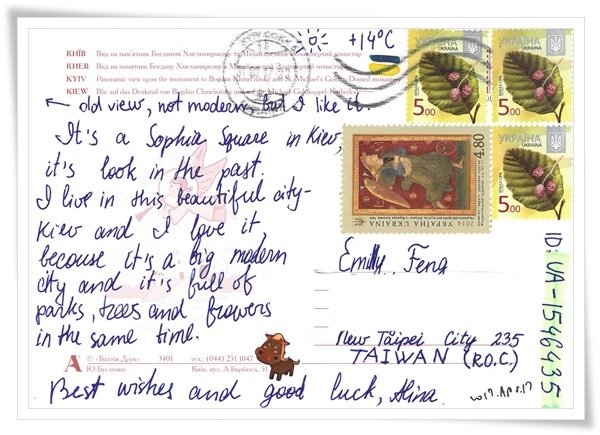 КИЇВ Вид на пам'ятник Богданові Хмельницькому та Михайлівський
КИЕВ Вид на памятник Богдану Хмельницкому и
KYIV Panoramic view upon the monument to Bogdan Khmelnitsky and St. Michael's Golden Domed monastery
KIEW Blick auf das Denkmal von Bogdan
+14°C
← old view, not modern, but I like it.
It's a Sophia Square in Kiev,
it's look in the past.
I live in this beautiful city-
Kiev and I love it,
because it's a big modern
city and it's full of
parks, trees and flowers
in the same time.
Best wishes and good luck, Alina.
УКРАЇНА
UKRAINE
5.00
УКРАЇНА
UKRAINE
5.00
УКРАЇНА
UKRAINE
5.00
4.80
2014 УКРАЇНА UKRAINE
Emilly Feng
New Taipei City 235
TAIWAN (R.O.C)
ID: UA-1546435
© «Балтія Друк» 3401 тел.: (044) 231 1047
Ю.Бусленко Київ, вул. А.Барбюса,